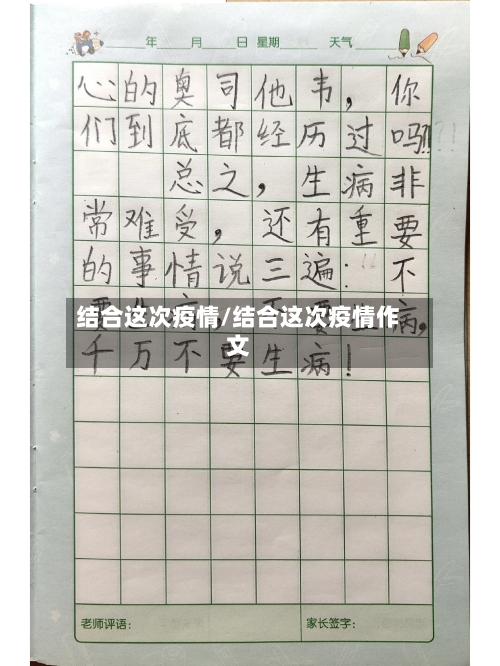 年 月 日 星期 天气
心的奥司他韦，你
们到底都经历过吗?!!
总之，生病非
常难受，还有重要
的事情说三遍：不
结合这次疫情/结合这次疫情作
文
病，
千万不要生病！
老师评语： 家长签字：